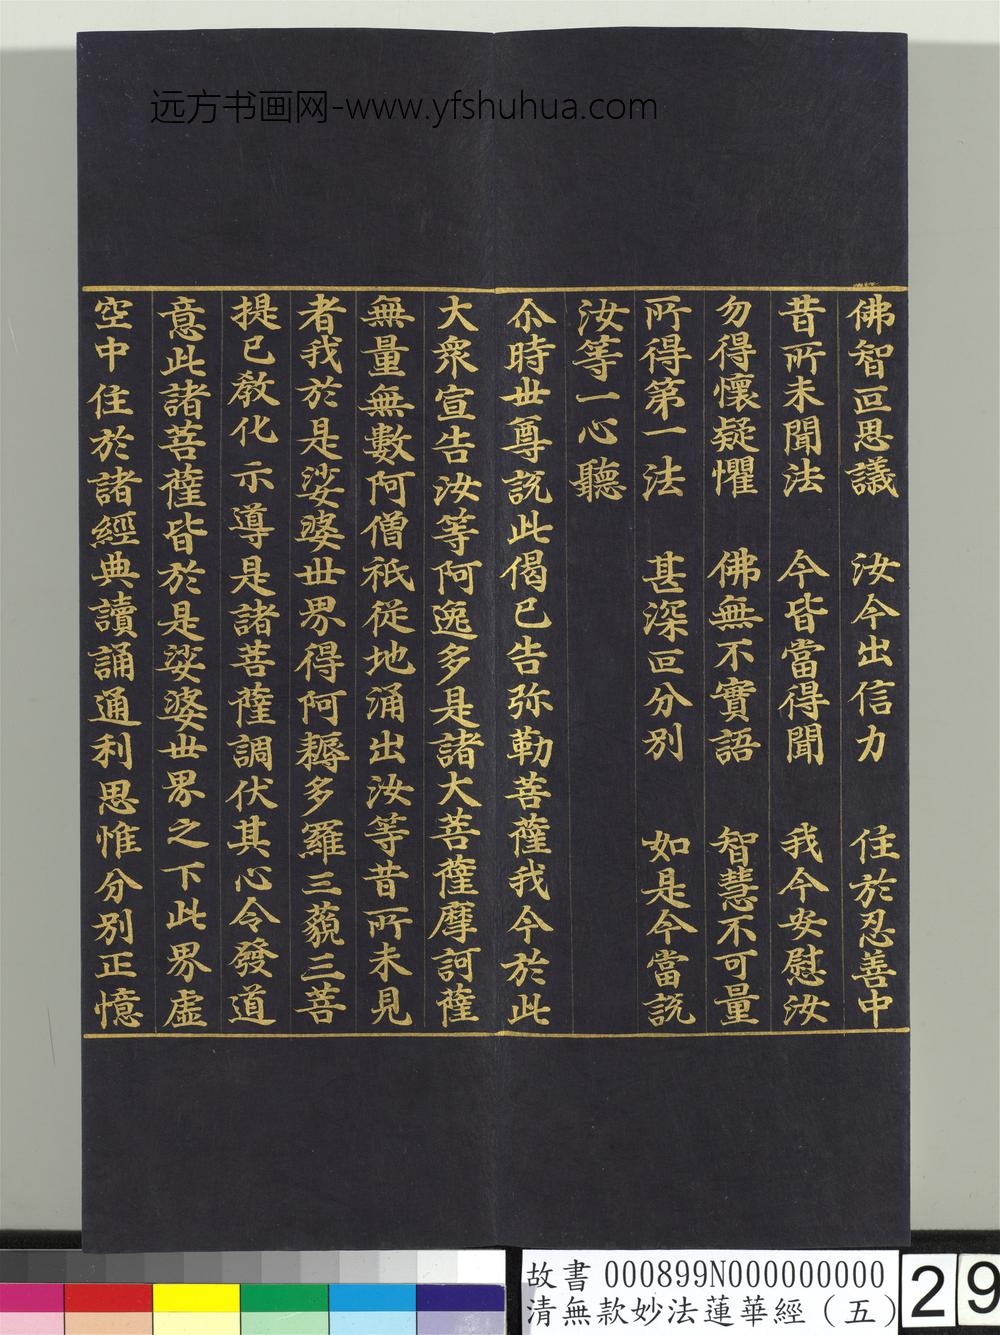 远方书画网-www.yfshuhua.com
佛智叵思議 汝今出信力 住於忍善中
昔所未聞法 今皆當得聞 我今安慰汝
勿得懷疑懼 佛無不實語 智慧不可量
所得第一法 甚深叵分別 如是今當説
汝等一心聽
尒時世尊説此偈已告弥勒菩薩我今於此
大眾宣告汝等阿逸多是諸大菩薩摩訶薩
無量無數阿僧祇從地涌出汝等昔所未見
者我於是娑婆世界得阿耨多羅三藐三菩
提已教化示導是諸菩薩調伏其心令發道
意此諸菩薩皆於是娑婆世界之下此界虛
空中住於諸經典讀誦通利思惟分別正憶
故書 000899N000000000
清無款妙法蓮華經（五）
29